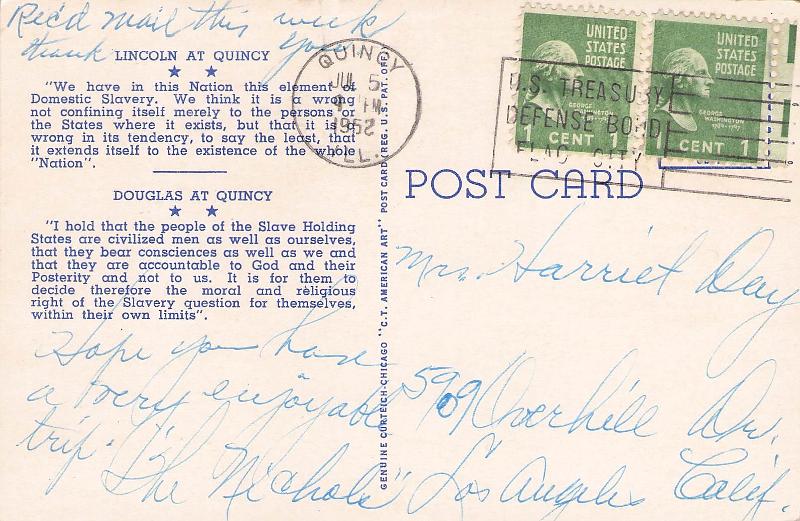 Rec'd mail this week
thank you
LINCOLN AT QUINCY
"We have in this Nation this element of
Domestic Slavery. We think it is a wrong
not confining itself merely to the persons or
the States where it exists, but that it is a
wrong in its tendency, to say the least, that
it extends itself to the existence of the whole
"Nation".
DOUGLAS AT QUINCY
"I hold that the people of the Slave Holding
States are civilized men as well as ourselves,
that they bear consciences as well as we and
that they are accountable to God and their
Posterity and not to us. It is for them to
decide therefore the moral and religious
right of the Slavery question for themselves,
within their own limits".
Hope you have
a very enjoyable
trip.
"The Nichols"
GENUINE CURTEICH-CHICAGO "C.T. AMERICAN ART" POST CARD (REG. U.S. PAT. OFF.)
QUINCY
JUL 5
PM
1952
ILL.
UNITED
STATES
POSTAGE
GEORGE
WASHINGTON
1 CENT 1
UNITED
STATES
POSTAGE
GEORGE
WASHINGTON
1789-1797
1 CENT 1
U.S. TREASURY
DEFENSE BOND
FLAG CITY
POST CARD
Mrs. Harriet Day
5909 Overhill Dr.
Los Angeles Calif.